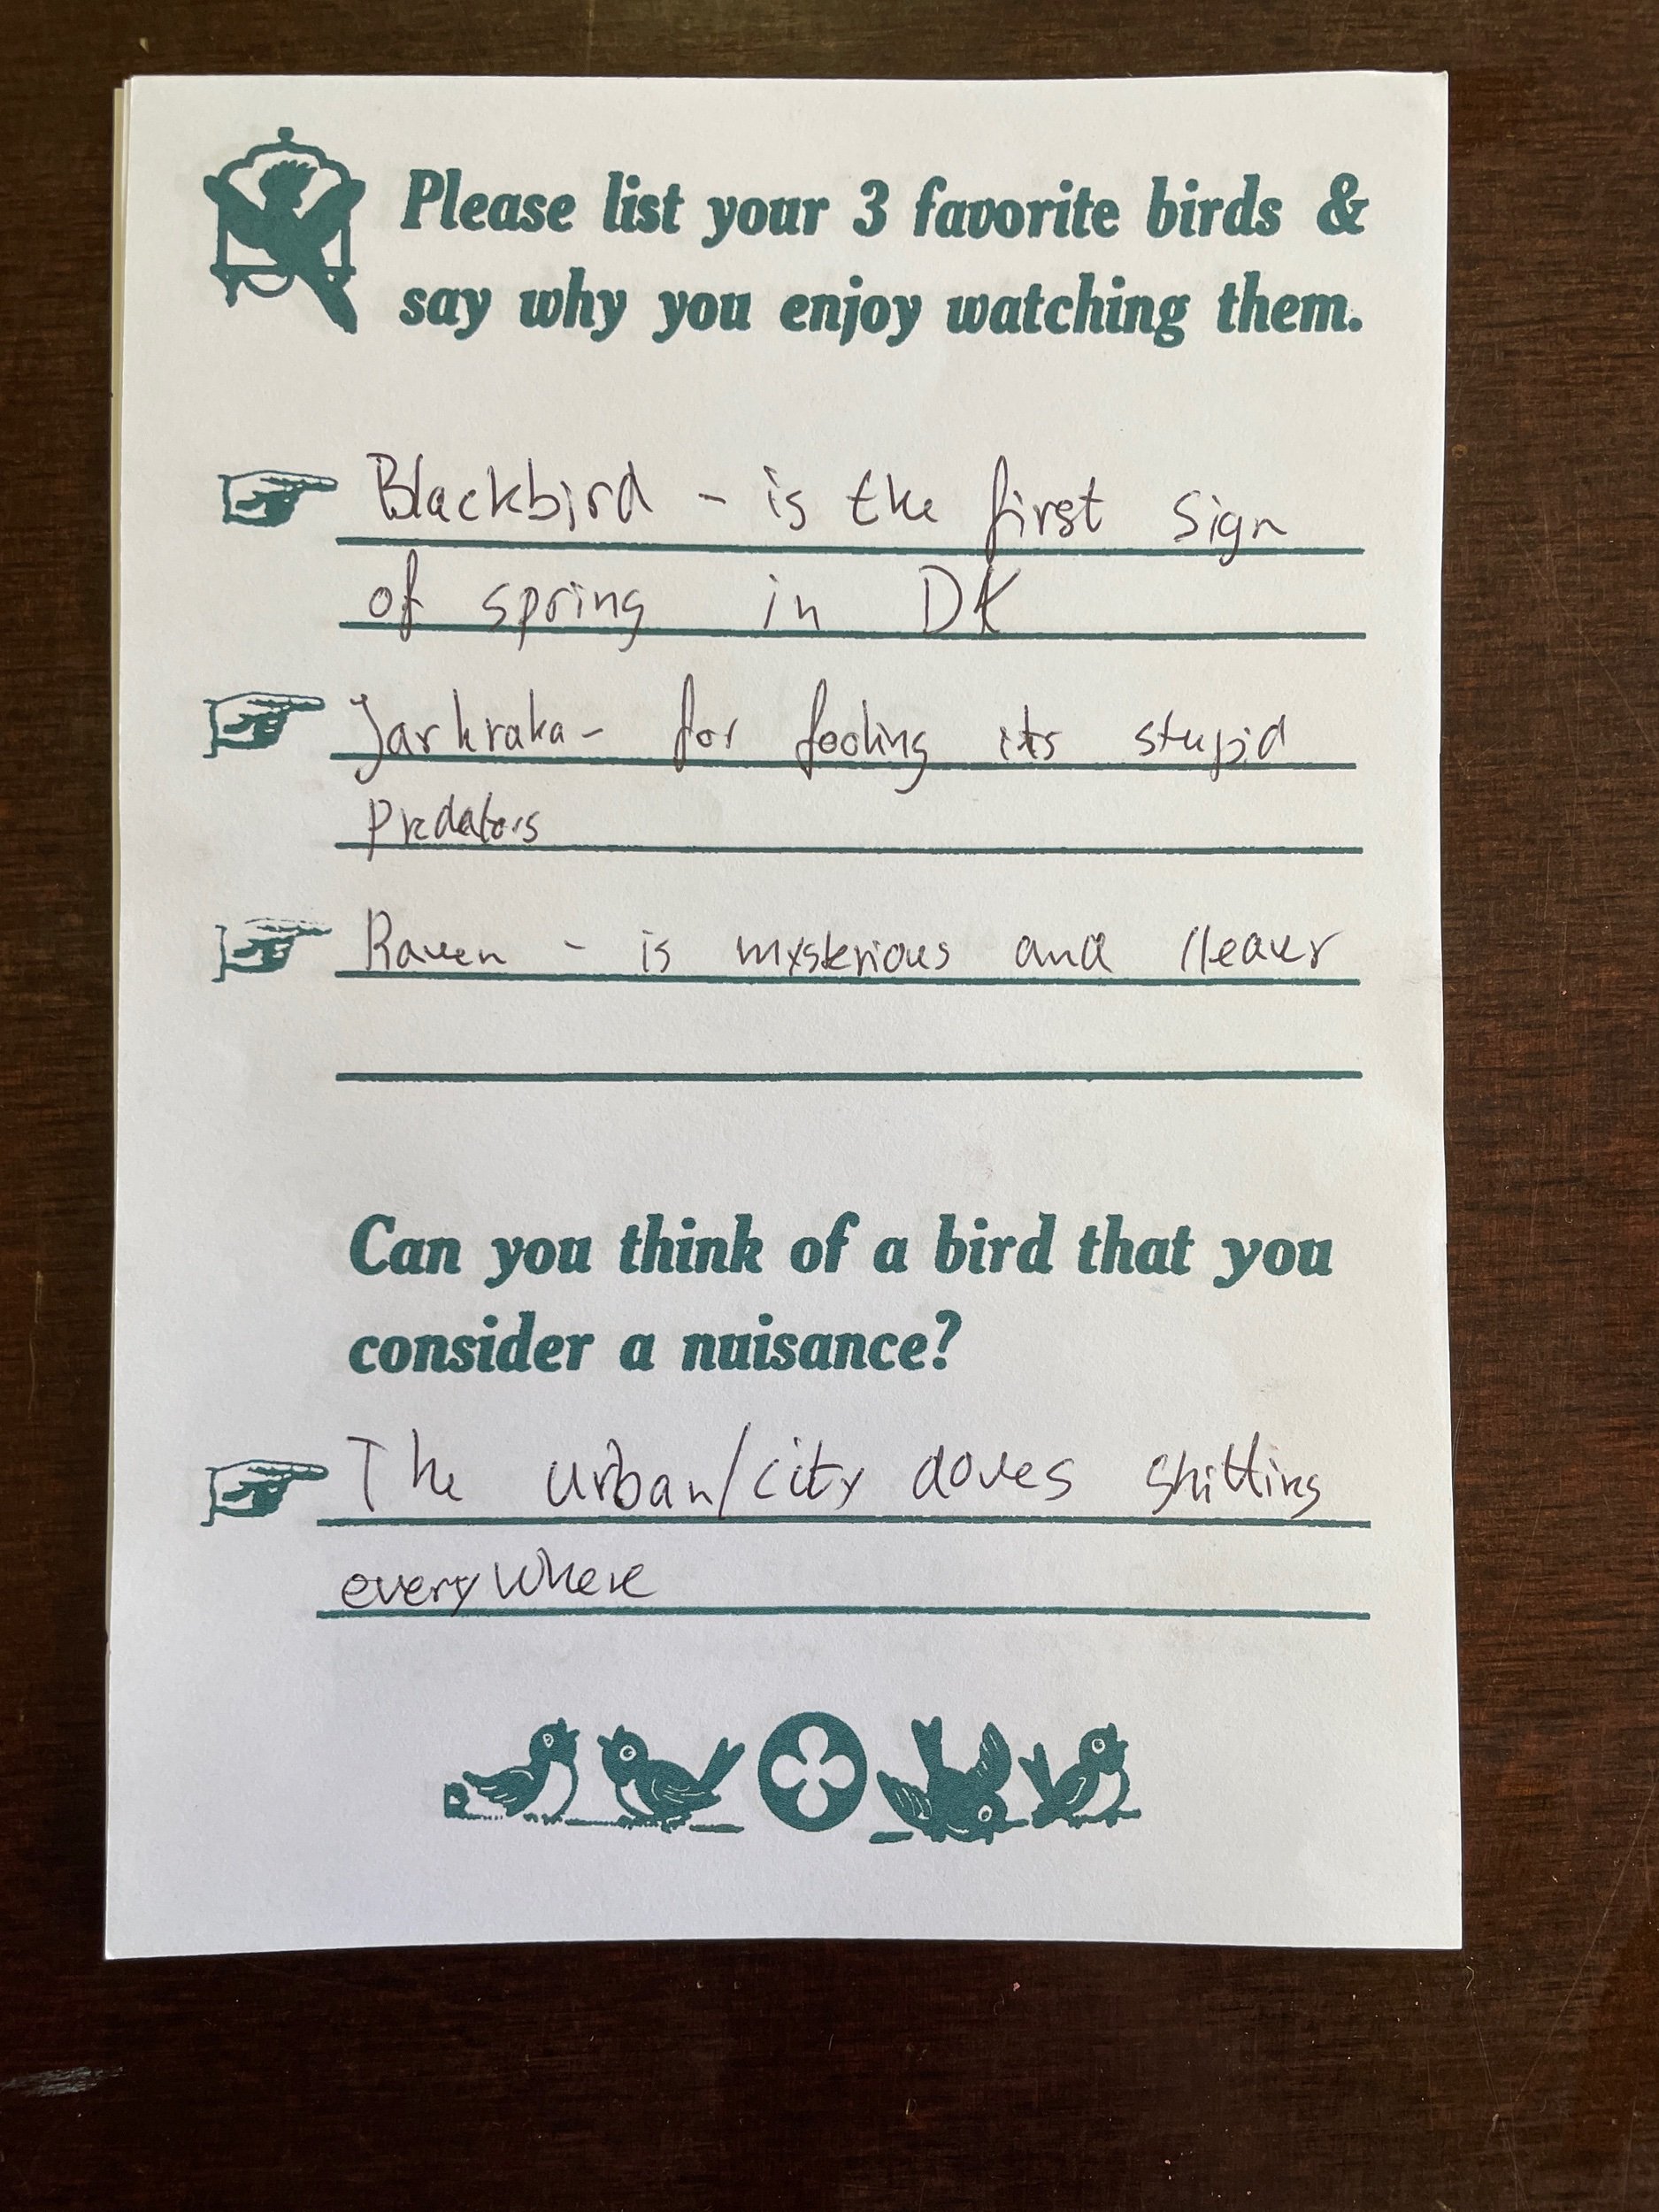 Please list your 3 favorite birds &
say why you enjoy watching them.
Blackbird - is the first sign
of spring in DK
Jarkraka - for fooling its stupid
predators
Raven - is mysterious and cleaver
Can you think of a bird that you
consider a nuisance?
The urban/city doves shitting
everywhere